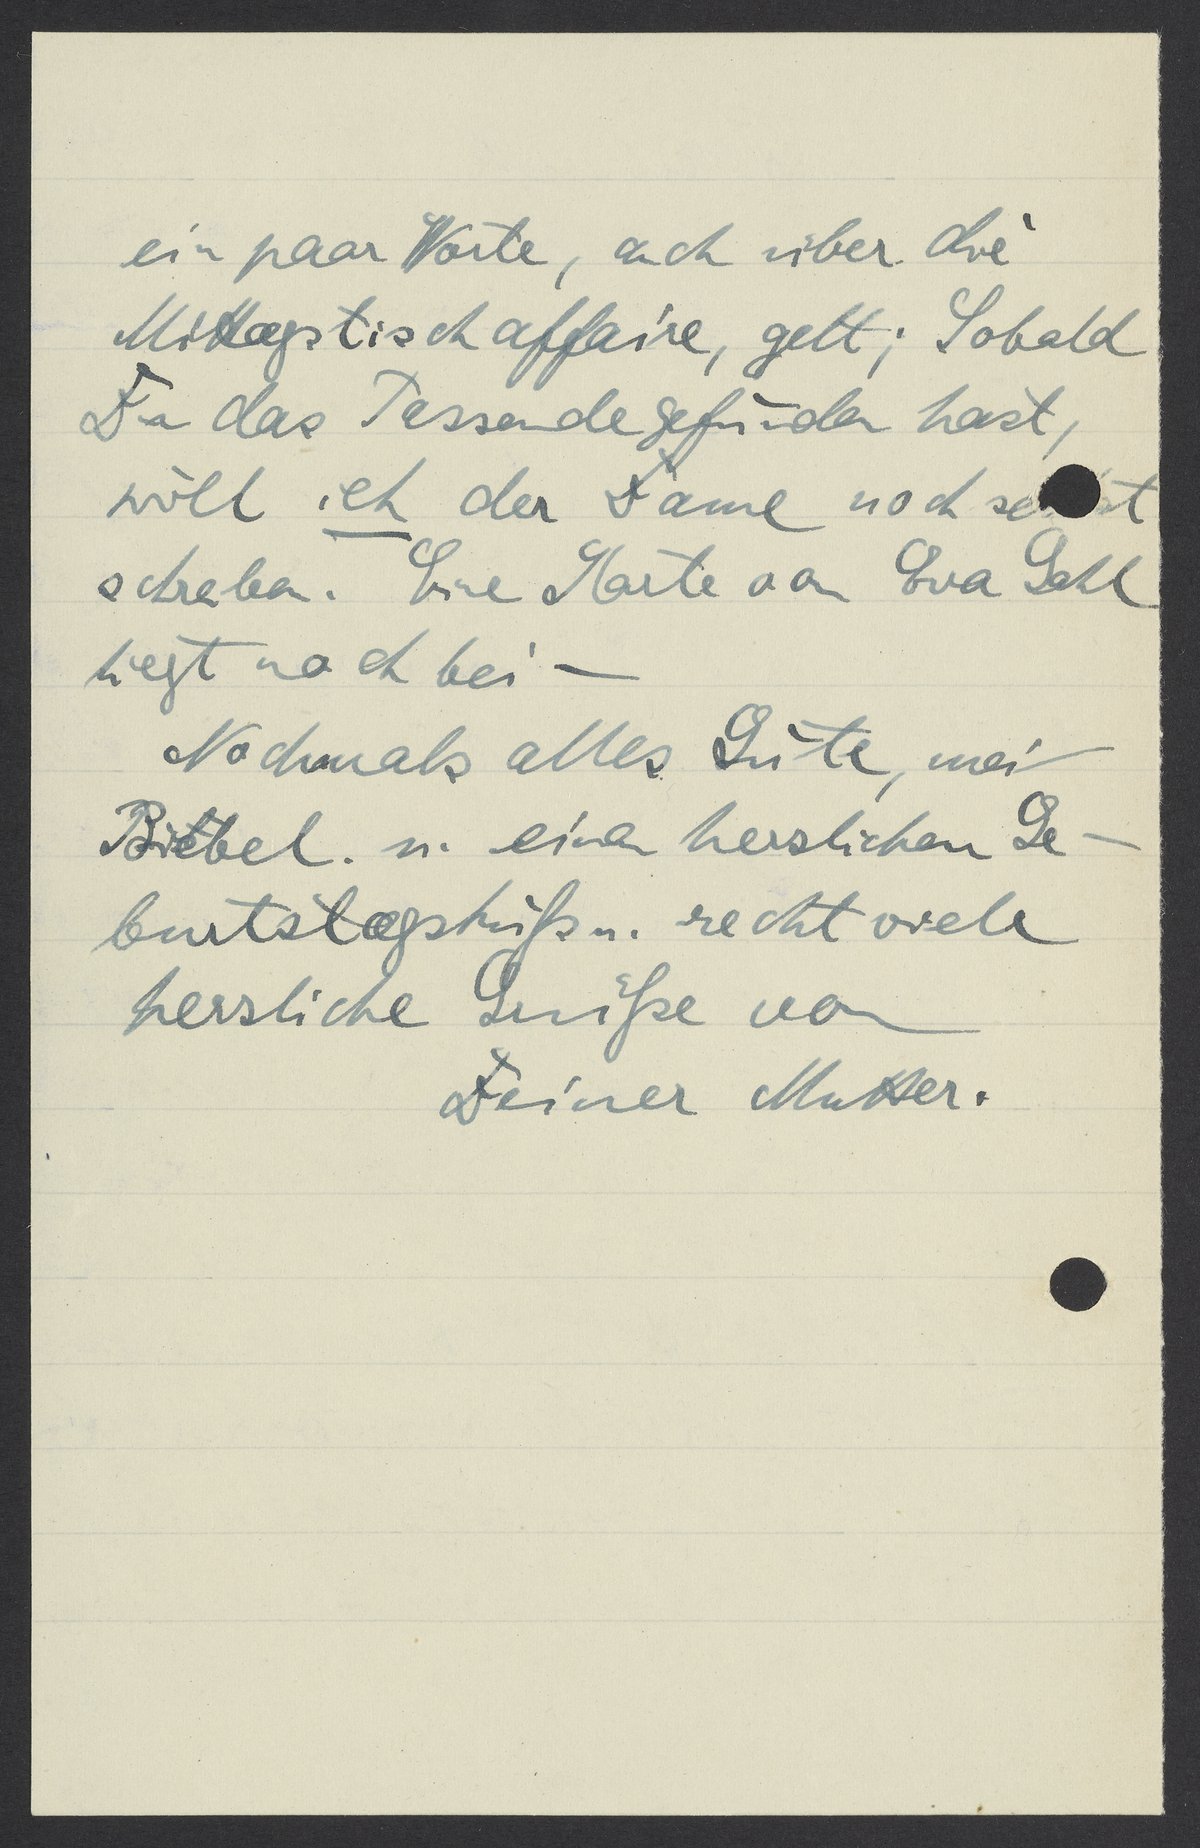 ein paar Worte, auch über die
Mittagstischaffaire, gelt; Sobald
Du das Passende gefunden hast,
will ich der Dame noch selbst
schreiben. Eine Karte von Eva
liegt noch bei —
Nochmals alles Gute, mein
Biebel. u. einen herzlichen Ge-
burtstagskuß u. recht viele
herzliche Grüße von
Deiner Mutter.